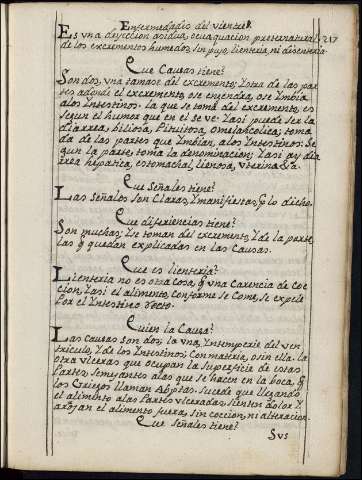 Enfermedades del vientre. 217
Es vna deyeccion asidua, o euaquacion preternatural,
de los excrementos humedos, sin pujo, lienteria, ni disenteria
Que Causas tiene?
Son dos, vna tamase del excremento; Y otra de las par
tes adonde el excremento, se engendra, ose Ymbia
alos Yntestinos. la que se toma del excremento, es
segun el humor que en el se ve. Y asi puede ser la
diarrea, biliosa, Pituitosa, o melancolica; toma
da de las partes que Ymbian, alos Yntestinos: Se
gun la parte, toma la denominacion; Y asi ay dia
rrea hepatica, estomachal, lienosa, vterina &a.
Que Señales tiene?
Las señales son Claras, Y manifiestas, p lo dicho.
Que diferiencias tiene?
Son muchas; Y se toman del excremento, Y de la parte
las q quedan explicadas en las Causas.
Que es lienteria?
Lienteria no es otra cosa, q vna Carencia de Coc
cion, Y asi el alimento, Conforme se Come, se expele
Por el Yntestino recto.
Quien la Causa?
Las causas son dos, la vna, Yntemperie del ven
triculo, Y de los Yntestinos; Con materia, o sin ella. la
otra vlceras que ocupan la superficie de estas
Partes, semejantes alas que se hacen en la boca, q
los Griegos llaman Aphtas. sucede que llegando
el alimento alas Partes vlceradas, sienten dolor Y
arojan el alimento fuera, sin coccion, ni alteracion
Que Señales tiene?
Sus